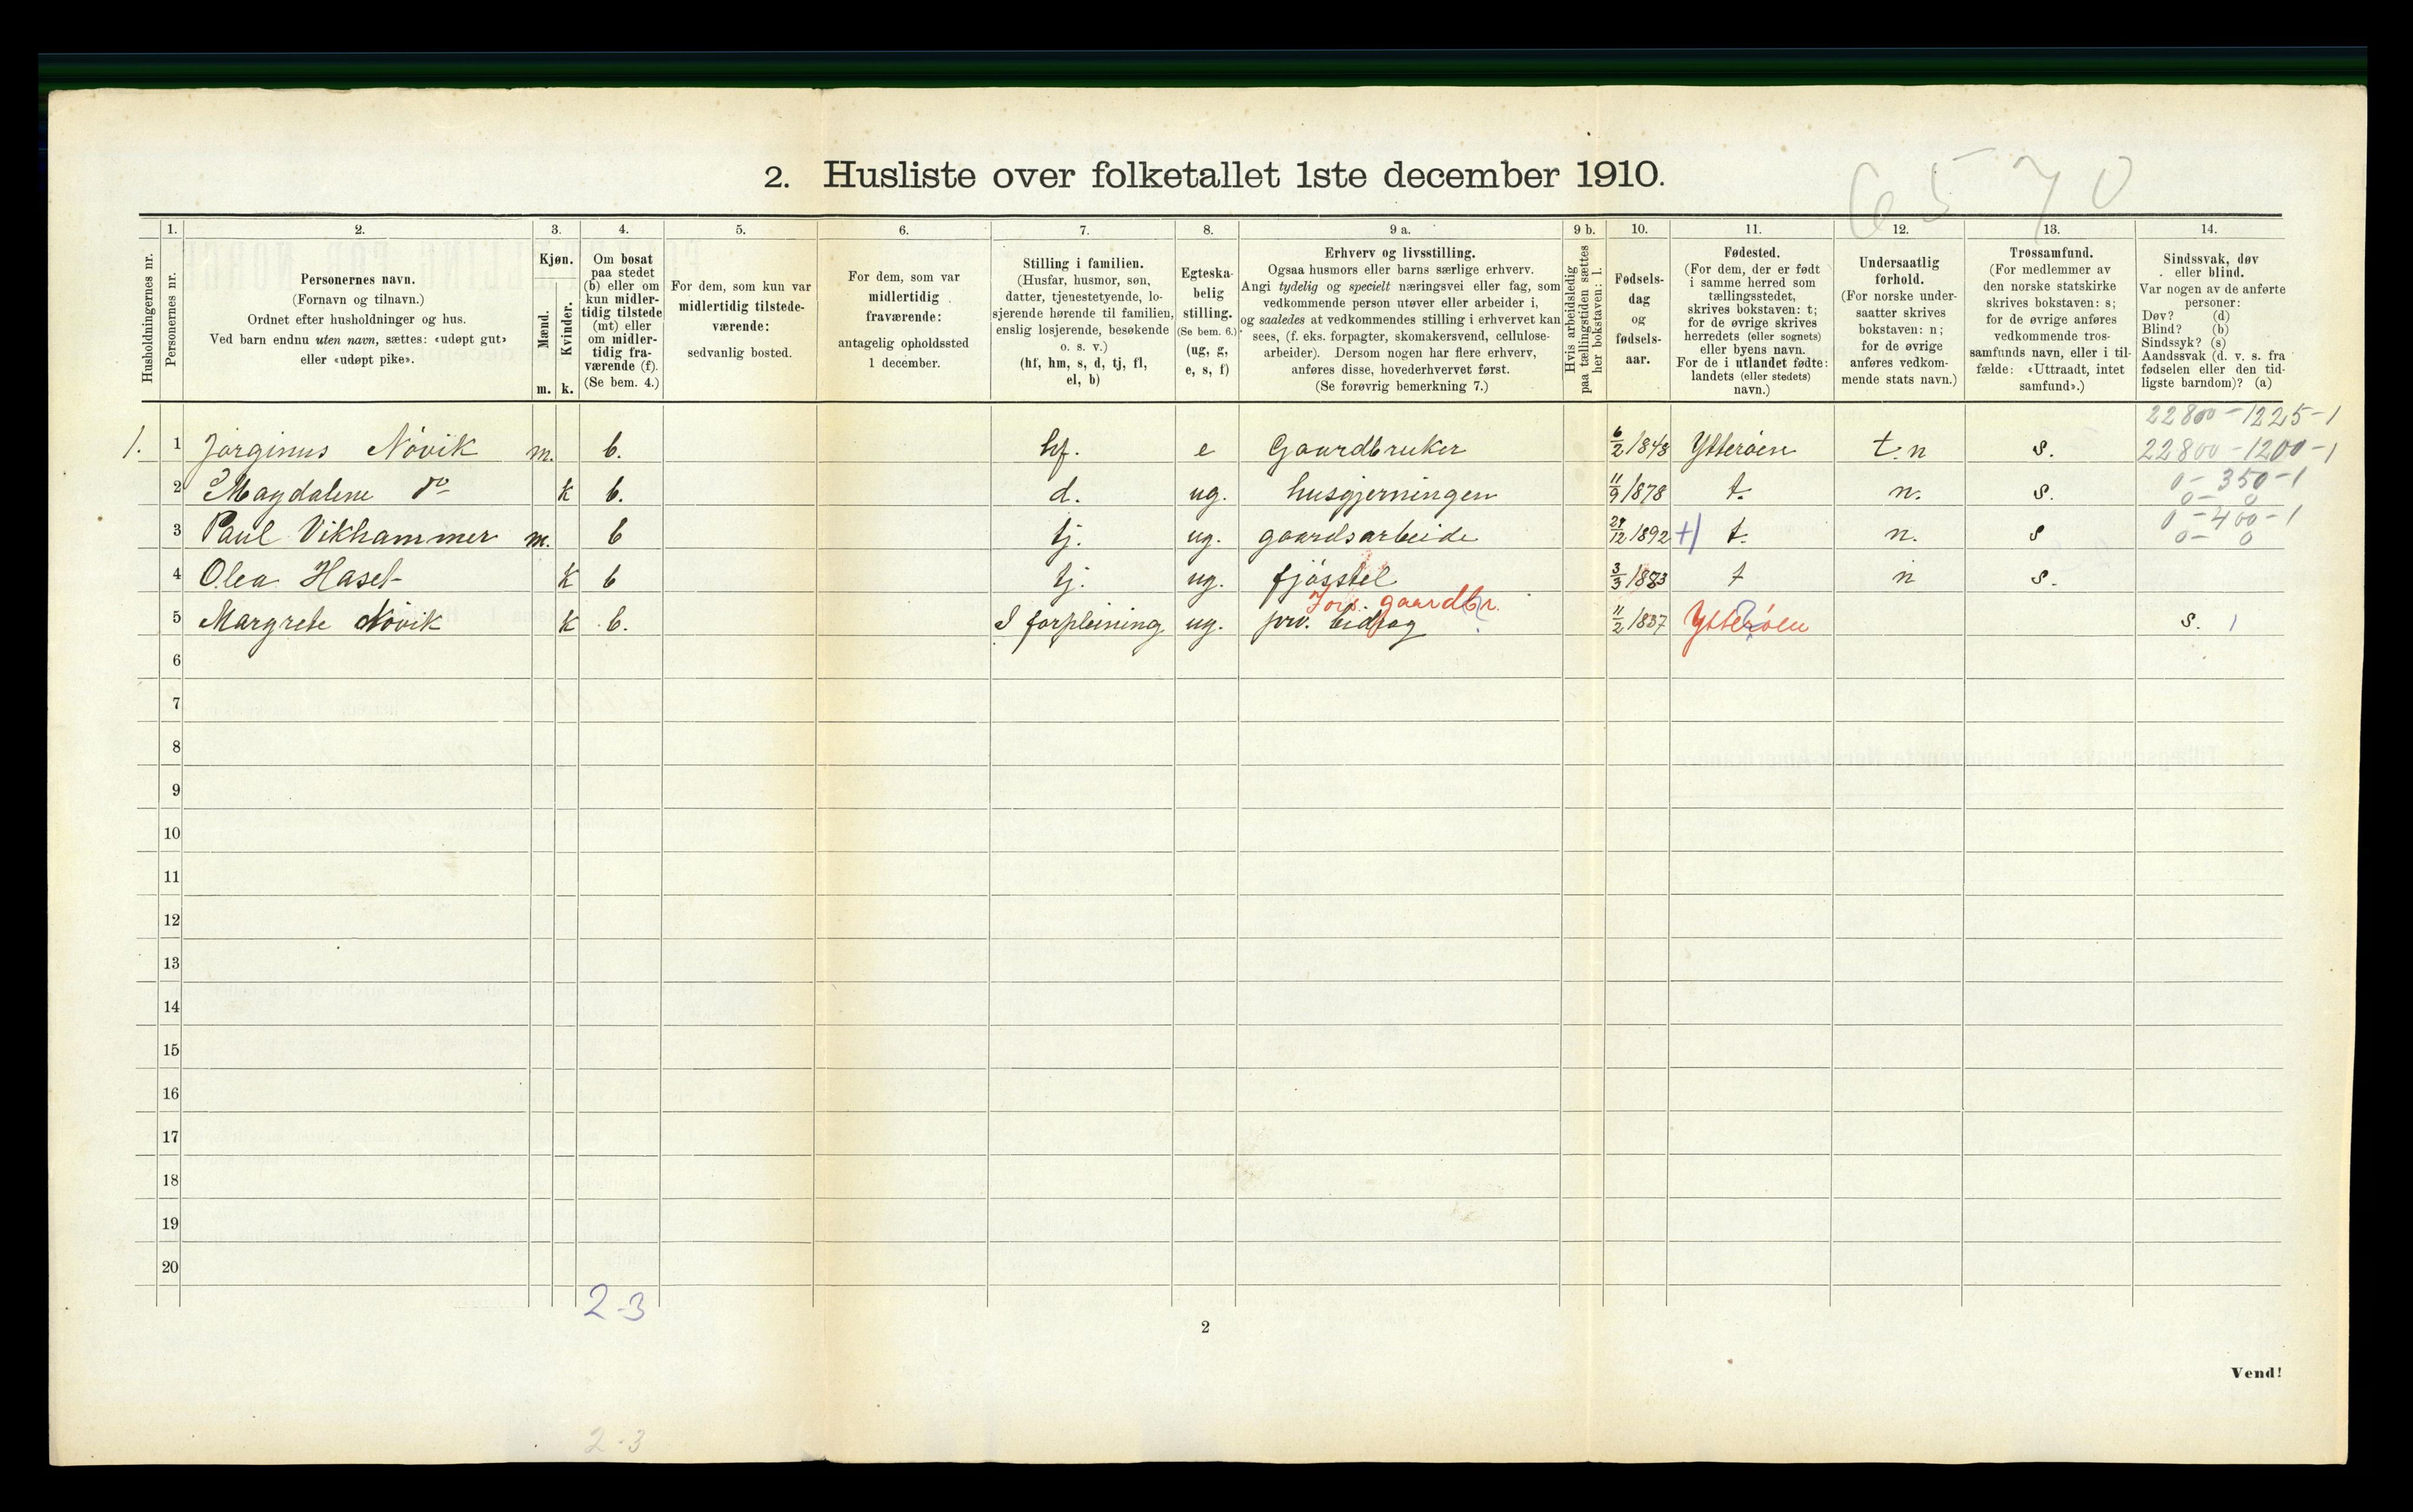 2. Husliste over folketallet 1ste december 1910.
6570
Husholdningernes nr.
1.
Personernes nr.
2.
Personernes navn.
(Fornavn og tilnavn.)
Ordnet efter husholdninger og hus.
Ved barn endnu uten navn, sættes: «udøpt gut»
eller «udøpt pike».
3.
Kjøn.
Mænd.
Kvinder.
m. k.
4.
Om bosat
paa stedet
(b) eller om
kun midler-
tidig tilstede
(mt) eller
om midler-
tidig fra-
værende (f).
(Se bem. 4.)
5.
For dem, som kun var
midlertidig tilstede-
værende:
sedvanlig bosted.
6.
For dem, som var
midlertidig
fraværende:
antagelig opholdssted
1 december.
7.
Stilling i familien.
(Husfar, husmor, søn,
datter, tjenestetyende, lo-
sjerende hørende til familien,
enslig losjerende, besøkende
o. s. v.)
(hf, hm, s, d, tj, fl,
el, b)
8.
Egteska-
belig
stilling.
(Se bem. 6.)
(ug, g,
e, s, f)
9 a.
Erhverv og livsstilling.
Ogsaa husmors eller barns særlige erhverv.
Angi tydelig og specielt næringsvei eller fag, som
vedkommende person utøver eller arbeider i,
og saaledes at vedkommendes stilling i erhvervet kan
sees, (f. eks. forpagter, skomakersvend, cellulose-
arbeider). Dersom nogen har flere erhverv,
anføres disse, hovederhvervet først.
(Se forøvrig bemerkning 7.)
9 b.
Hvis arbeidsledig
paa tællingstiden sættes
her bokstaven: l.
10.
Fødsels-
dag
og
fødsels-
aar.
11.
Fødested.
(For dem, der er født
i samme herred som
tællingsstedet,
skrives bokstaven: t;
for de øvrige skrives
herredets (eller sognets)
eller byens navn.
For de i utlandet fødte:
landets (eller stedets)
navn.)
12.
Undersaatlig
forhold.
(For norske under-
saatter skrives
bokstaven: n;
for de øvrige
anføres vedkom-
mende stats navn.)
13.
Trossamfund.
(For medlemmer av
den norske statskirke
skrives bokstaven: s;
for de øvrige anføres
vedkommende tros-
samfunds navn, eller i til-
fælde: «Uttraadt, intet
samfund».)
14.
Sindssvak, døv
eller blind.
Var nogen av de anførte
personer:
Døv? (d)
Blind? (b)
Sindssyk? (s)
Aandssvak (d. v. s. fra
fødselen eller den tid-
ligste barndom)? (a)
22800-1225-1
1. 1 Jørginus Növik m. b. hf. e Gaardbruker 6/2 1848 Ytterøen t. n s. 22800-1200-1
0-350-1
2 Magdalene do k b. d. ug. husgjerningen 11/9 1878 t. n. s. 0-0
0-400-1
3 Paul Vikhammer m. b tj. ug. gaardsarbeide 29/12 1892 +) t. n. s 0-0
4 Olea Hasel k b tj. ug. fjösstel 3/3 1883 t n s.
Fors. gaardbr.
5 Margrete Növik k b. I forpleining ug. prv. bidrag ? 11/2 1837 Ytterøen s. 1
6
7
8
9
10
11
12
13
14
15
16
17
18
19
20
2-3
2
Vend!
2-3